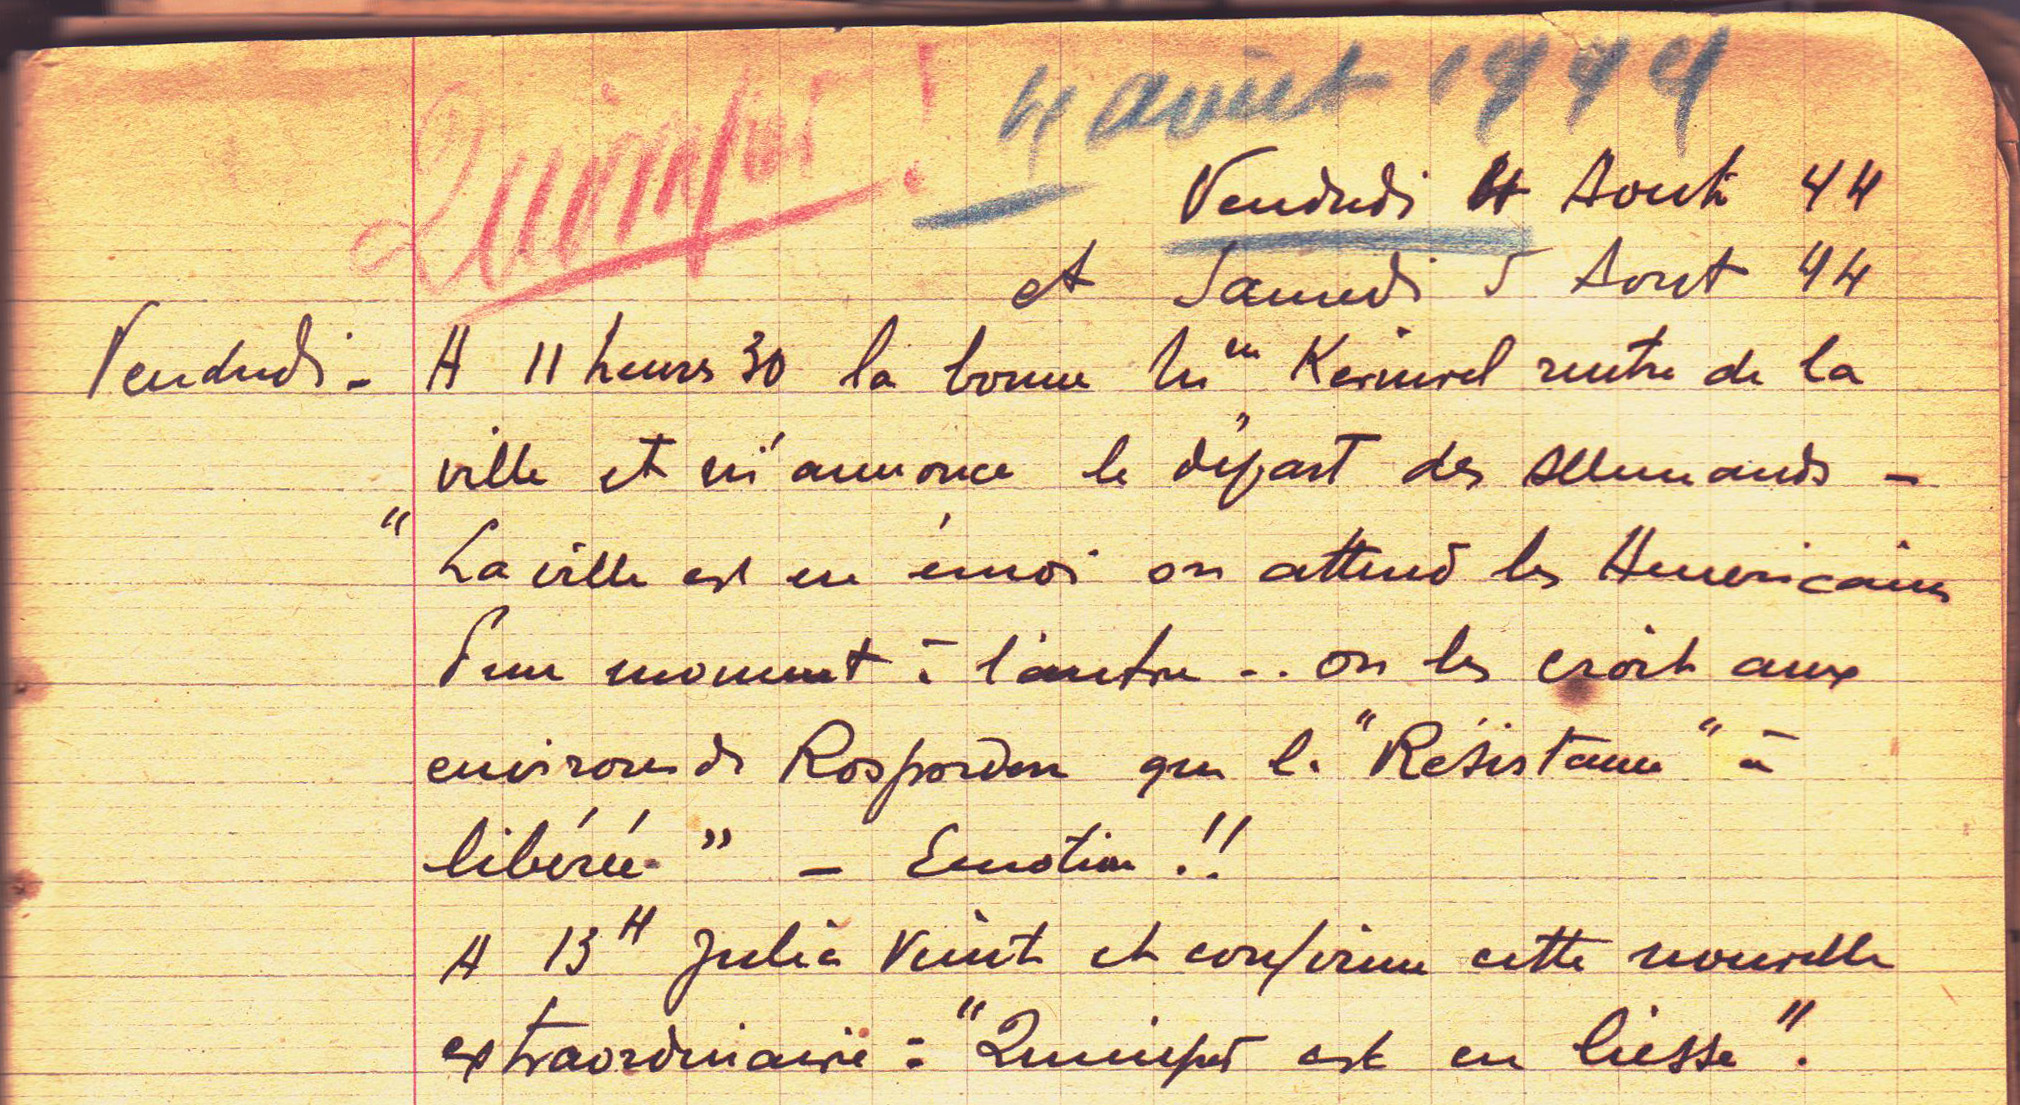 Quimper ! 4 août 1944
Vendredi 4 Août 44
et Samedi 5 Août 44
Vendredi - A 11 heures 30 la bonne Mme rentre de la
ville et m'annonce le départ des Allemands -
" La ville est en émoi on attend les Americains
d'un moment à l'autre -.. on les croit aux
environs de Rosporden que la "Résistance" à
libérée " - Emotion !!
A 13H Julia vient et confirme cette nouvelle
extraordinaire : "Quimper est en liesse".